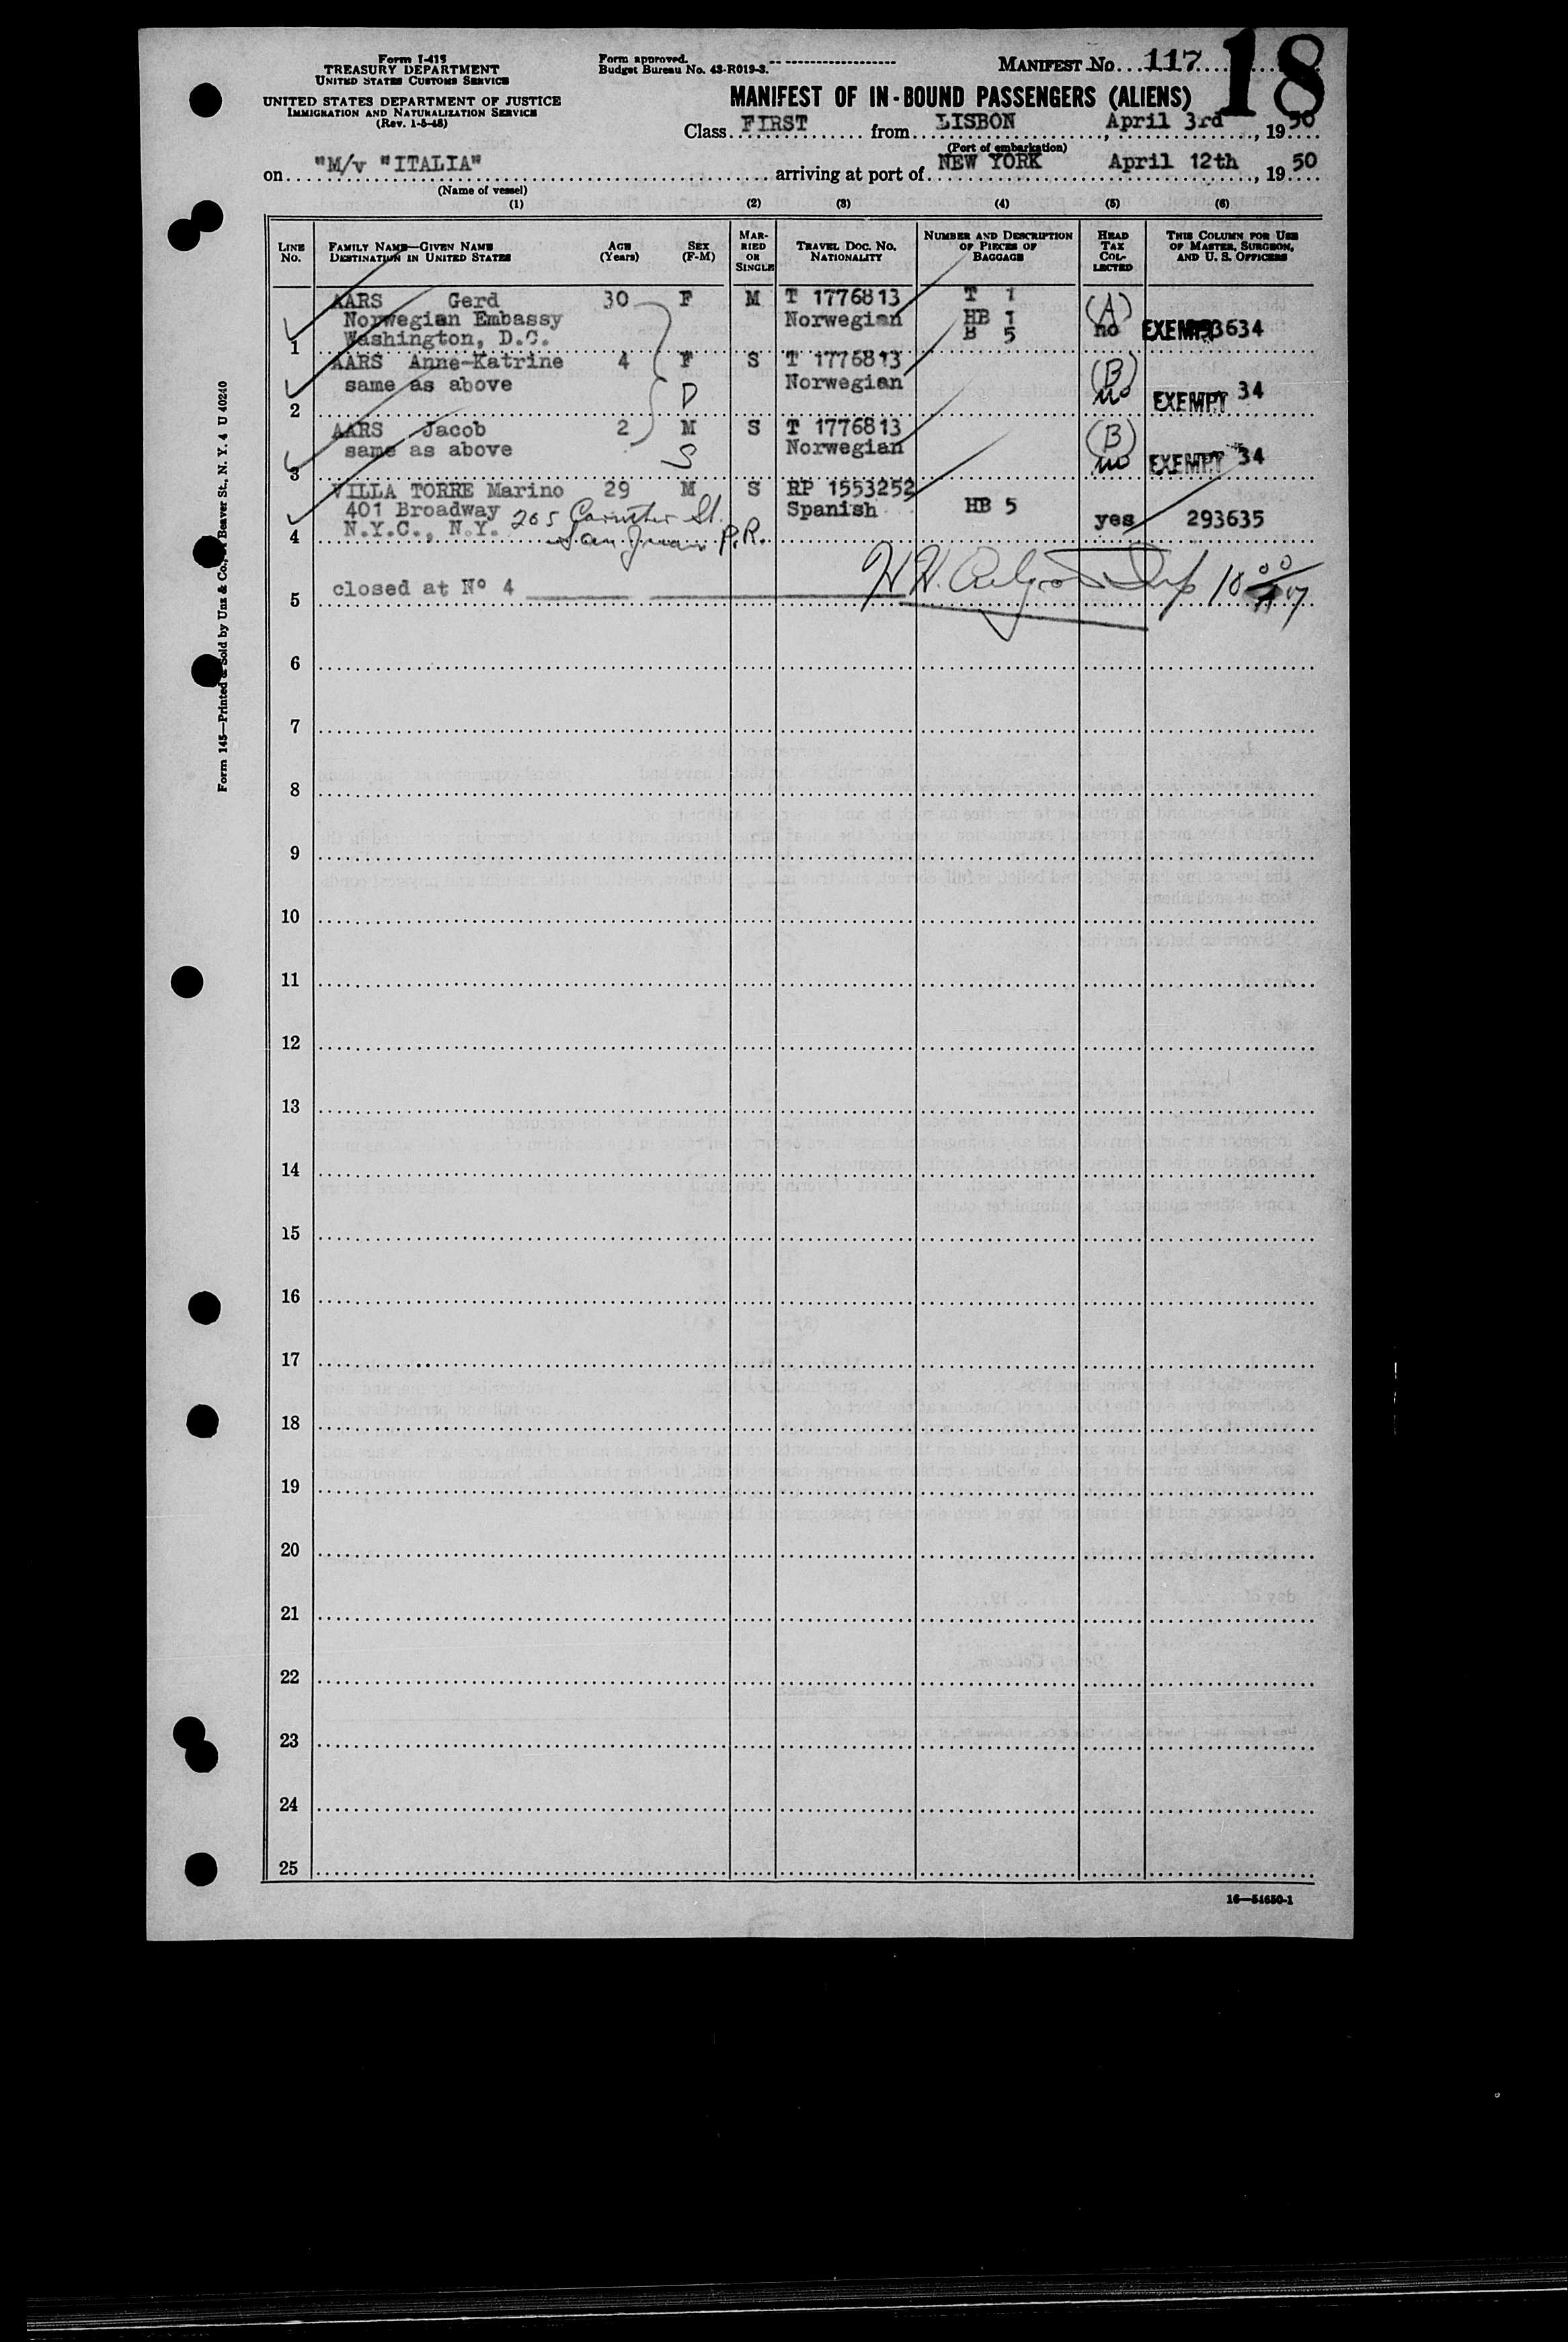 Form I-415
TREASURY DEPARTMENT
UNITED STATES CUSTOMS SERVICE
UNITED STATES DEPARTMENT OF JUSTICE
IMMIGRATION AND NATURALIZATION SERVICE
(Rev. 1-5-48)
Form approved.
Budget Bureau No. 43-R019-3.
MANIFEST No. 117
18
MANIFEST OF IN-BOUND PASSENGERS (ALIENS)
Class FIRST from LISBON, April 3rd, 1950
(Port of embarkation)
on "M/v "ITALIA" arriving at port of NEW YORK April 12th, 1950
(Name of vessel)
(1) (2) (3) (4) (5) (6)
LINE No. FAMILY NAME—GIVEN NAME DESTINATION IN UNITED STATES AGE (Years) SEX (F-M) MARRIED OR SINGLE TRAVEL DOC. NO. NATIONALITY NUMBER AND DESCRIPTION OF PIECES OF BAGGAGE HEAD TAX COLLECTED THIS COLUMN FOR USE OF MASTER, SURGEON, AND U. S. OFFICERS
AARS Gerd 30 F M T 1776813 T 1 (A)
Norwegian Embassy Norwegian HB 1 no EXEMPT 293634
1 Washington, D.C. B 5
AARS Anne-Katrine 4 F S T 1776813 (B)
same as above D Norwegian no EXEMPT 34
2
AARS Jacob 2 M S T 1776813 (B)
same as above S Norwegian no EXEMPT 34
3
VILLA TORRE Marino 29 M S RP 1553252
401 Broadway 265 St. Spanish HB 5 yes 293635
4 N.Y.C., N.Y. San Juan P.R.
closed at No 4
5
6
7
8
9
10
11
12
13
14
15
16
17
18
19
20
21
22
23
24
25
16—54650-1
Form 145—Printed & Sold by Unz & Co., Beaver St., N. Y. 4 U 40240